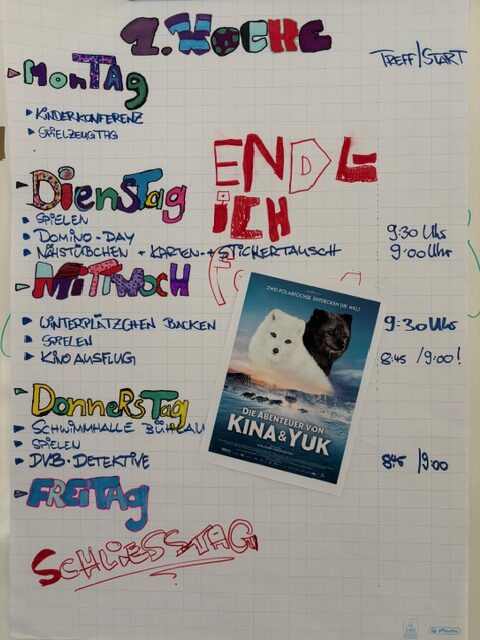 1. WOCHE
TREFF/START
MONTAG
KINDERKONFERENZ
SPIELZEUGTAG
ENDL
ICH
DIENSTAG
SPIELEN
DOMINO-DAY 9:30 Uhr
NÄHSTÜBCHEN + KARTEN- + STICKERTAUSCH 9:00 Uhr
MITTWOCH
WINTERPLÄTZCHEN BACKEN 9:30 Uhr
SPIELEN
KINO AUSFLUG 8:45 /9:00!
ZWEI POLARFÜCHSE ENTDECKEN DIE WELT
DIE ABENTEUER VON
KINA & YUK
DONNERSTAG
SCHWIMMHALLE BÜHLAU
SPIELEN
DVB-DETEKTIVE 8:45 /9:00
FREITAG
SCHLIESSTAG